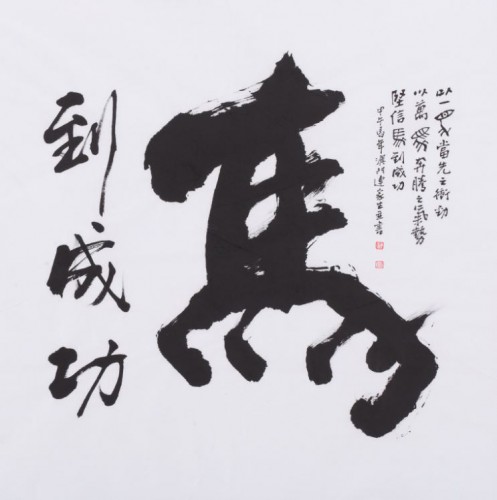 以一馬當先之衝勁
以萬馬奔騰之氣勢
堅信馬到成功
甲午馬年 書
馬
到成功